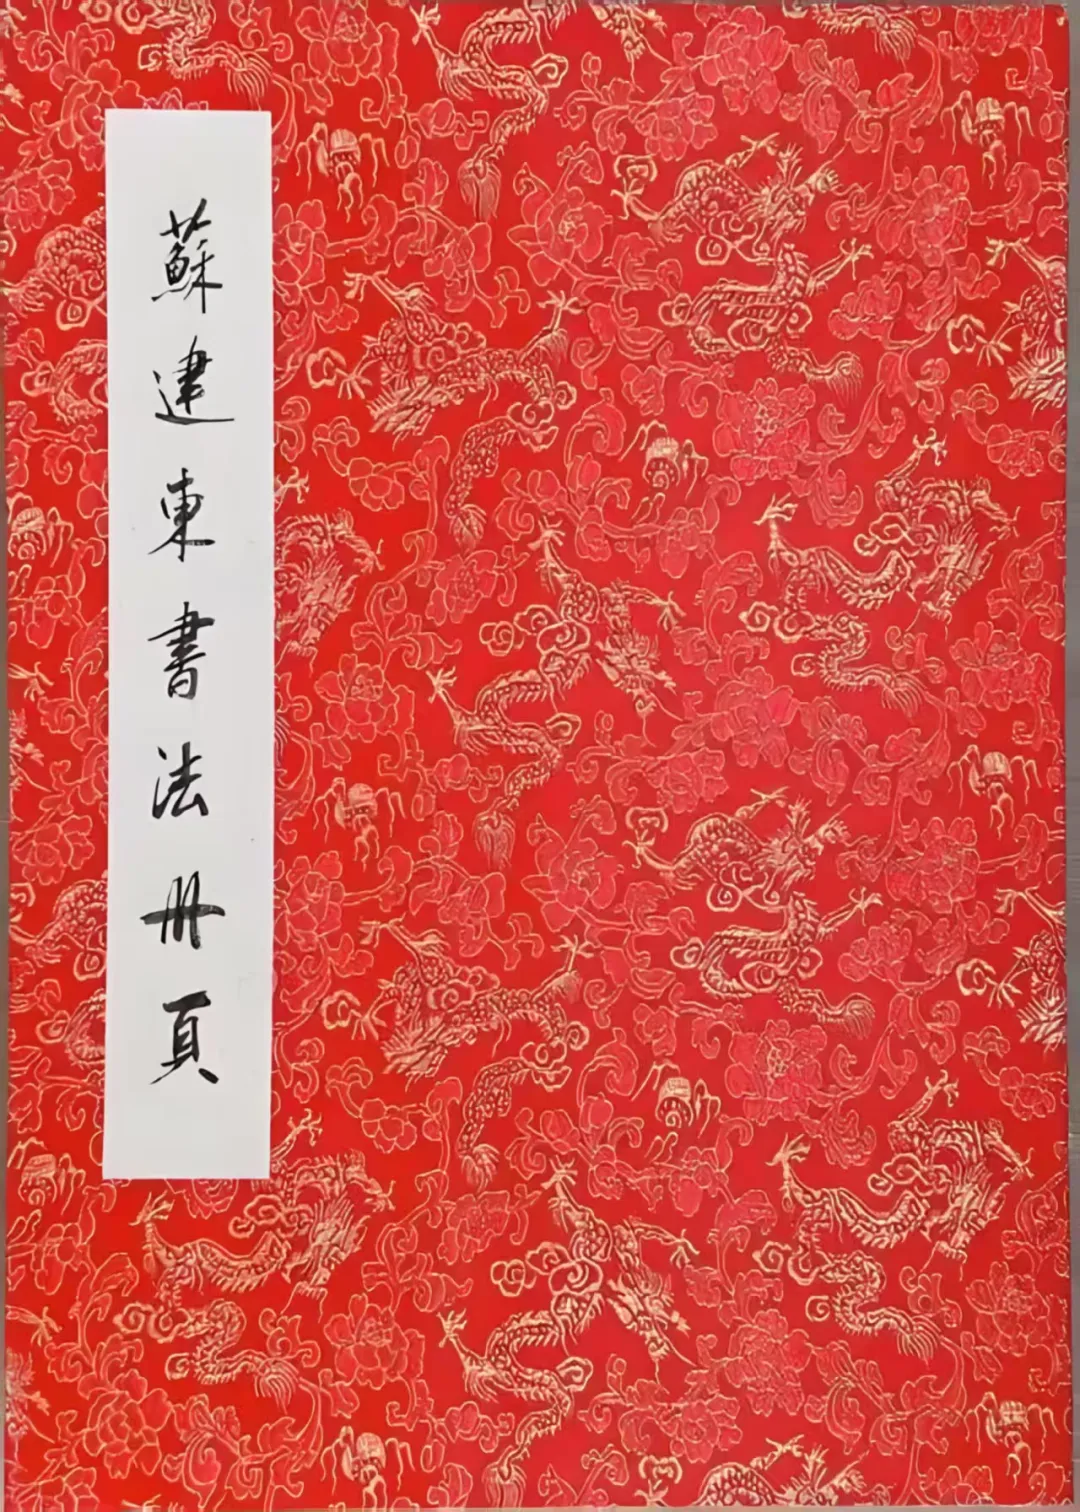 蘇建東書法册頁